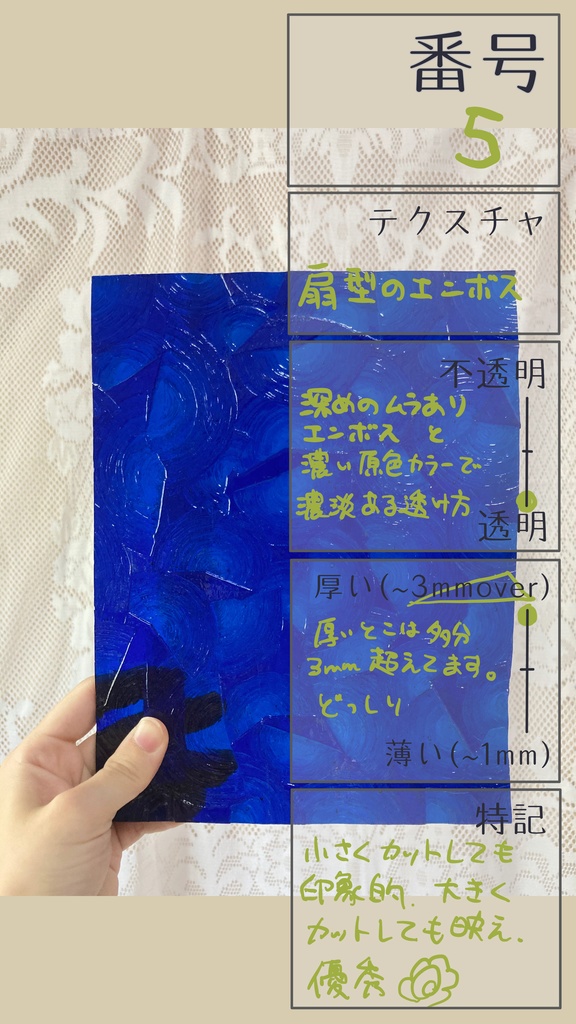 番号
5
テクスチャ
扇型のエンボス
不透明
深めのムラあり
エンボス と
濃い原色カラーで
濃淡ある透け方
透明
厚い(~3mmover)
厚いとこは多分
3mm 超えてます。
どっしり
薄い(~1mm)
特記
小さくカットしても
印象的、大きく
カットしても映え、
優秀